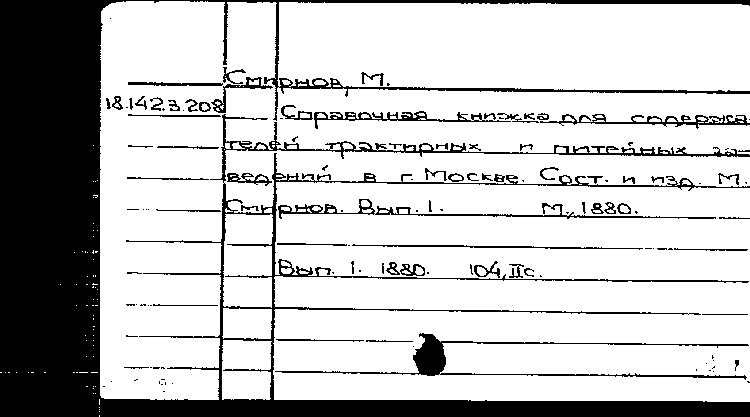 Смирнов, М.
18.142.3.208
Справочная книжка для содержа-
телей трактирных и питейных за-
ведений в г. Москве. Сост. и изд. М.
Смирнов. Вып. 1. М., 1880.
Вып. 1. 1880. 104, II с.